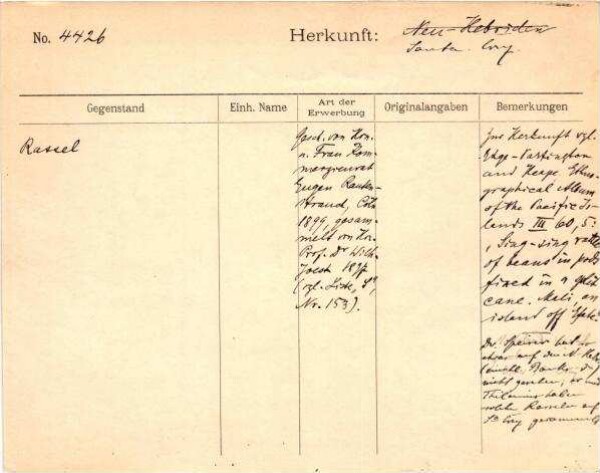 No. 4426
Herkunft: Neu-Hebriden
Santa Cruz.
Gegenstand
Einh. Name
Art der
Erwerbung
Originalangaben
Bemerkungen
Rassel
Gesch. von Hrn.
u. Frau Kom-
merzienrat
Eugen Rauten-
strauch, Cöln
1899, gesam-
melt von Hrn.
Prof. Dr Wilh.
Joest 1897
(vgl. Liste,
Nr. 153).
Zur Herkunft vgl.
Edge-Partington
and Heape Ethno-
graphical Album
of the Pacific Is-
lands III 60, 5:
"Sing-sing rattle
of beans in pods
fixed in a split
cane. Meli, an
island off Efate.
Dr. Speiser hat so
etwas auf den N. Heb.
nicht gesehen, er und
Thilenius haben
solche Rasseln auf
Sta Cruz gesammelt